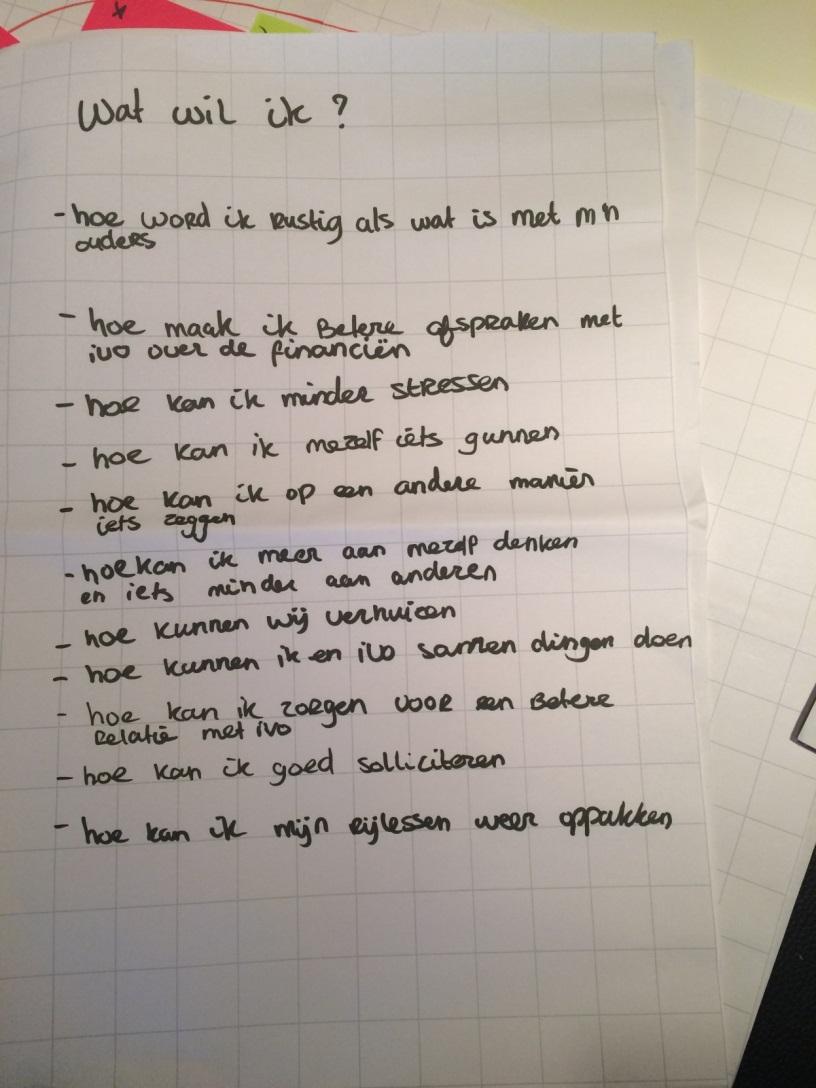 Wat wil ik?
- hoe word ik rustig als wat is met m'n
ouders
- hoe maak ik Betere afspraken met
ivo over de financiën
- hoe kan ik minder stressen
- hoe kan ik mezelf iets gunnen
- hoe kan ik op een andere maniër
iets zeggen
- hoe kan ik meer aan mezelf denken
en iets minder aan anderen
- hoe kunnen wij verhuizen
- hoe kunnen ik en ivo samen dingen doen
- hoe kan ik zorgen voor een Betere
Relatie met ivo
- hoe kan ik goed solliciteren
- hoe kan ik mijn rijlessen weer oppakken